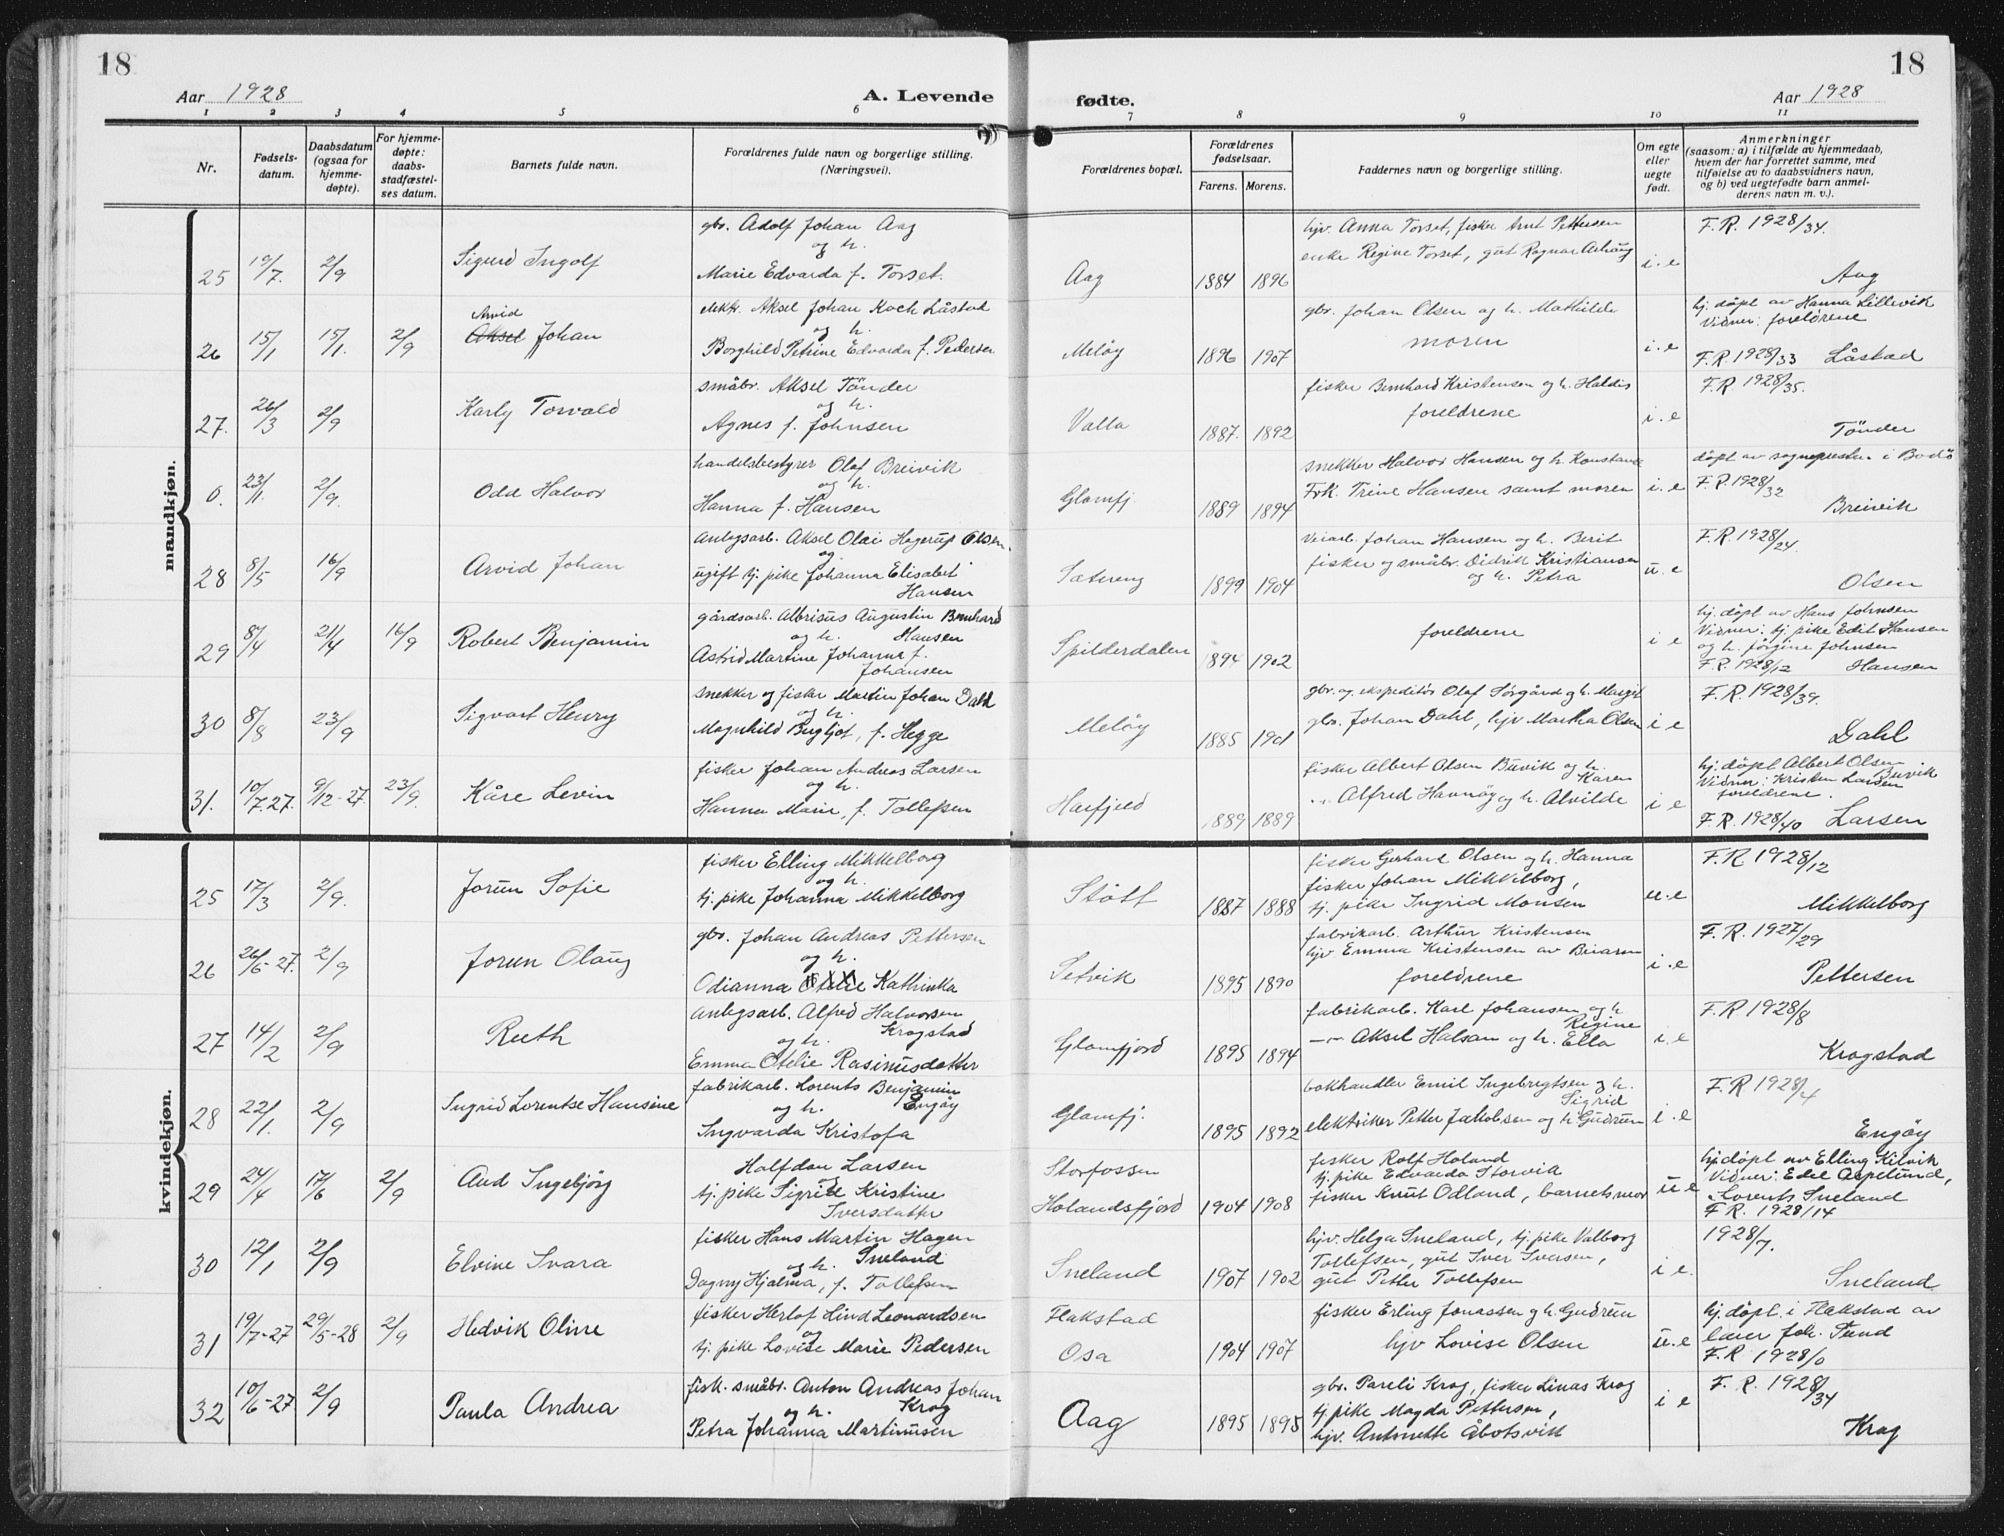 18
18
Aar 1928
A. Levende
fødte.
Aar 1928
1 2 3 4 5 6 7 8 9 10 11
Nr.
Fødsels-
datum.
Daabsdatum
(ogsaa for
hjemme-
døpte).
For hjemme-
døpte:
daabs-
stadfæstel-
ses datum.
Barnets fulde navn.
Forældrenes fulde navn og borgerlige stilling.
(Næringsvei).
Forældrenes bopæl.
Forældrenes
fødselsaar.
Farens. Morens.
Faddernes navn og borgerlige stilling.
Om egte
eller
uegte
født.
Anmerkninger
(saasom: a) i tilfælde av hjemmedaab,
hvem der har forrettet samme, med
tilføielse av to daabsvidners navn,
og b) ved uegtefødte barn anmel-
derens navn m. v.).
mandkjøn.
25 19/7. 2/9 Sigurd Ingolf
gbr. Adolf Johan Aag
og h.
Marie Edvarda f. Torset.
Aag 1884 1896
hjv. Anna Torset, fisker Arnt Pettersen
enke Regine Torset, gut Ragnar
i.e
F.R. 1928/34.
Aag
26 15/1 15/1. 2/9
Arvid
Aksel Johan
elektr. Aksel Johan Koch Låstad
og h.
Borghild Petrine Edvarda f. Pedersen
Meløy 1896 1907
gbr. Johan Olsen og h. Mathilde
moren
i.e
hj. døpt av Hanna Lillevik
Vidner: foreldrene
F.R. 1928/33 Låstad
27. 26/3 2/9 Karly Torvald
småbr. Aksel Tönder
og h.
Agnes f. Johnsen
Valla 1887. 1892
fisker Bernhard Kristensen og h. Haldis
foreldrene
i.e
F.R. 1928/35.
Tönder
0. 23/1. 2/9. Odd Halvor
handelsbestyrer Olaf Breivik
og h.
Hanna f. Hansen
Glomfj. 1889 1894
snekker Halvor Hansen og h. Konstanse
Frk. Trine Hansen samt moren
i.e
døpt av sognepresten i Bodø
F.R. 1928/32
Breivik
28 8/5 16/9 Arvid Johan
anlegsarb. Aksel Olai Hagerup Olsen.
og
ugift tj. pike Johanna Elisabet
Hansen
Sætereng 1899 1904
veiarb. Johan Hansen og h. Berit
fisker og småbr. Didrik Kristiansen
og h. Petra
u.e
F.R. 1928/24.
Olsen
29 8/4 21/4 16/9 Robert Benjamin
gårdsarb. Albrisus Augustin Bernhard
og h. Hansen
Astrid Martine Johanna f.
Johansen
Spilderdalen 1894 1902
foreldrene
i e
hj. døpt av Hans Johnsen
Vidner: tj. pike Edit Hansen
og h. Jørgine Johnsen
F.R. 1928/12 Hansen
30 8/8 23/9 Sigvart Henry
snekker og fisker Martin Johan Dahl
og h.
Magnhild Bergljot, f. Hegge
Meløy 1885 1901
gbr. og ekspeditør Olaf Sørgård og h. Margit
gbr. Johan Dahl, hjv Martha Olsen
i e
F.R. 1928/39.
Dahl
31. 10/7.27. 9/12-27. 23/9. Kåre Levin
fisker Johan Andreas Larsen
og h.
Hanna Marie, f. Tollefsen
Havfjeld 1889 1889
fisker Albert Olsen Buvik og h.
Karen
-"- Alfred Havnøy og h. Alvilde
i e
hj. døpt Albert Olsen
Buvik
Vidner: Kristen Larsen
foreldrene.
F.R. 1928/40 Larsen
kvindekjøn.
25 17/3 2/9. Jorun Sofie
fisker Elling Mikkelborg
og h.
tj. pike Johanna Mikkelborg
Støtt 1887 1888
fisker Gerhard Olsen og h. Hanna
fisker Johan Mikkelborg,
tj. pike Ingrid Monsen
u.e
F.R 1928/12
Mikkelborg
26 26/6-27. 2/9 Jorun Olaug
gbr. Johan Andreas Pettersen
og h.
Odianna Otelie Kathinka
Setvik 1895 1890
fabrikarb. Arthur Kristensen
hjv Emma Kristensen av Beiarn
foreldrene
i.e
F.R. 1927/29
Pettersen
27 14/2 2/9 Ruth
anlegsarb. Alfred Halvorsen
Krogstad
og h.
Emma Otelie Rasmusdatter
Glomfjord 1895 1894
fabrikarb. Karl Johansen og h
Regine
-"- Aksel Halsan og h. Ella
i.e
F.R 1928/8
Krogstad
28 22/1. 2/9 Ingrid Lorentse Hansine
fabrikarb. Lorents Benjamin
og h. Engøy
Ingvarda Kristofa
Glomfj. 1895 1892
bokhandler Emil Ingebrigtsen og h.
Sigrid
elektriker Petter Jakobsen og h Gudrun
i.e
F.R 1928/4
Engøy
29 24/4 17/6 2/9 Aud Ingebjørg
Halfdan Larsen
tj. pike Sigrid Kristine
Iversdatter
Storfossen
Holandsfjord 1904 1908
fisker Rolf Holand
tj. pike Edvarda Storvik
fisker Knut Odland, barnets mor
u e
hj. døpt av Elling Kilvik
Vidner: Edel Asplund,
Lorents Sneland
F.R. 1928/14
30 12/1 2/9 Elvine Svara
fisker Hans Martin Hagen
og h. Sneland
Dagny Hjalma, f. Tollefsen
Sneland 1907 1902
hjv. Helga Sneland, tj. pike Valborg
Tollefsen, gut Iver Iversen,
gut Petter Tollefsen
i e.
1928/7.
Sneland
31 19/7-27 29/5-28 2/9 Hedvik Oline
fisker Herlof Lind Leonardsen
og
tj. pike Lovise Marie Pedersen
Flakstad
Osa 1904 1907
fisker Erling Jonassen og h. Gudrun
hjv Lovise Olsen
u.e
hj. døpt. i Flakstad av
lærer Joh. Tund
F.R 1928/0
32 10/6-27 2/9 Paula Andrea
fisk. småbr. Anton Andreas Johan
og h. Krog
Petra Johanna Martinusen
Aag 1895 1895
gbr. Pareli Krog, fisker Linas Krog
tj. pike Magda Pettersen,
hjv. Antonette Åbotsvik
i e
F.R. 1928/34
Krog